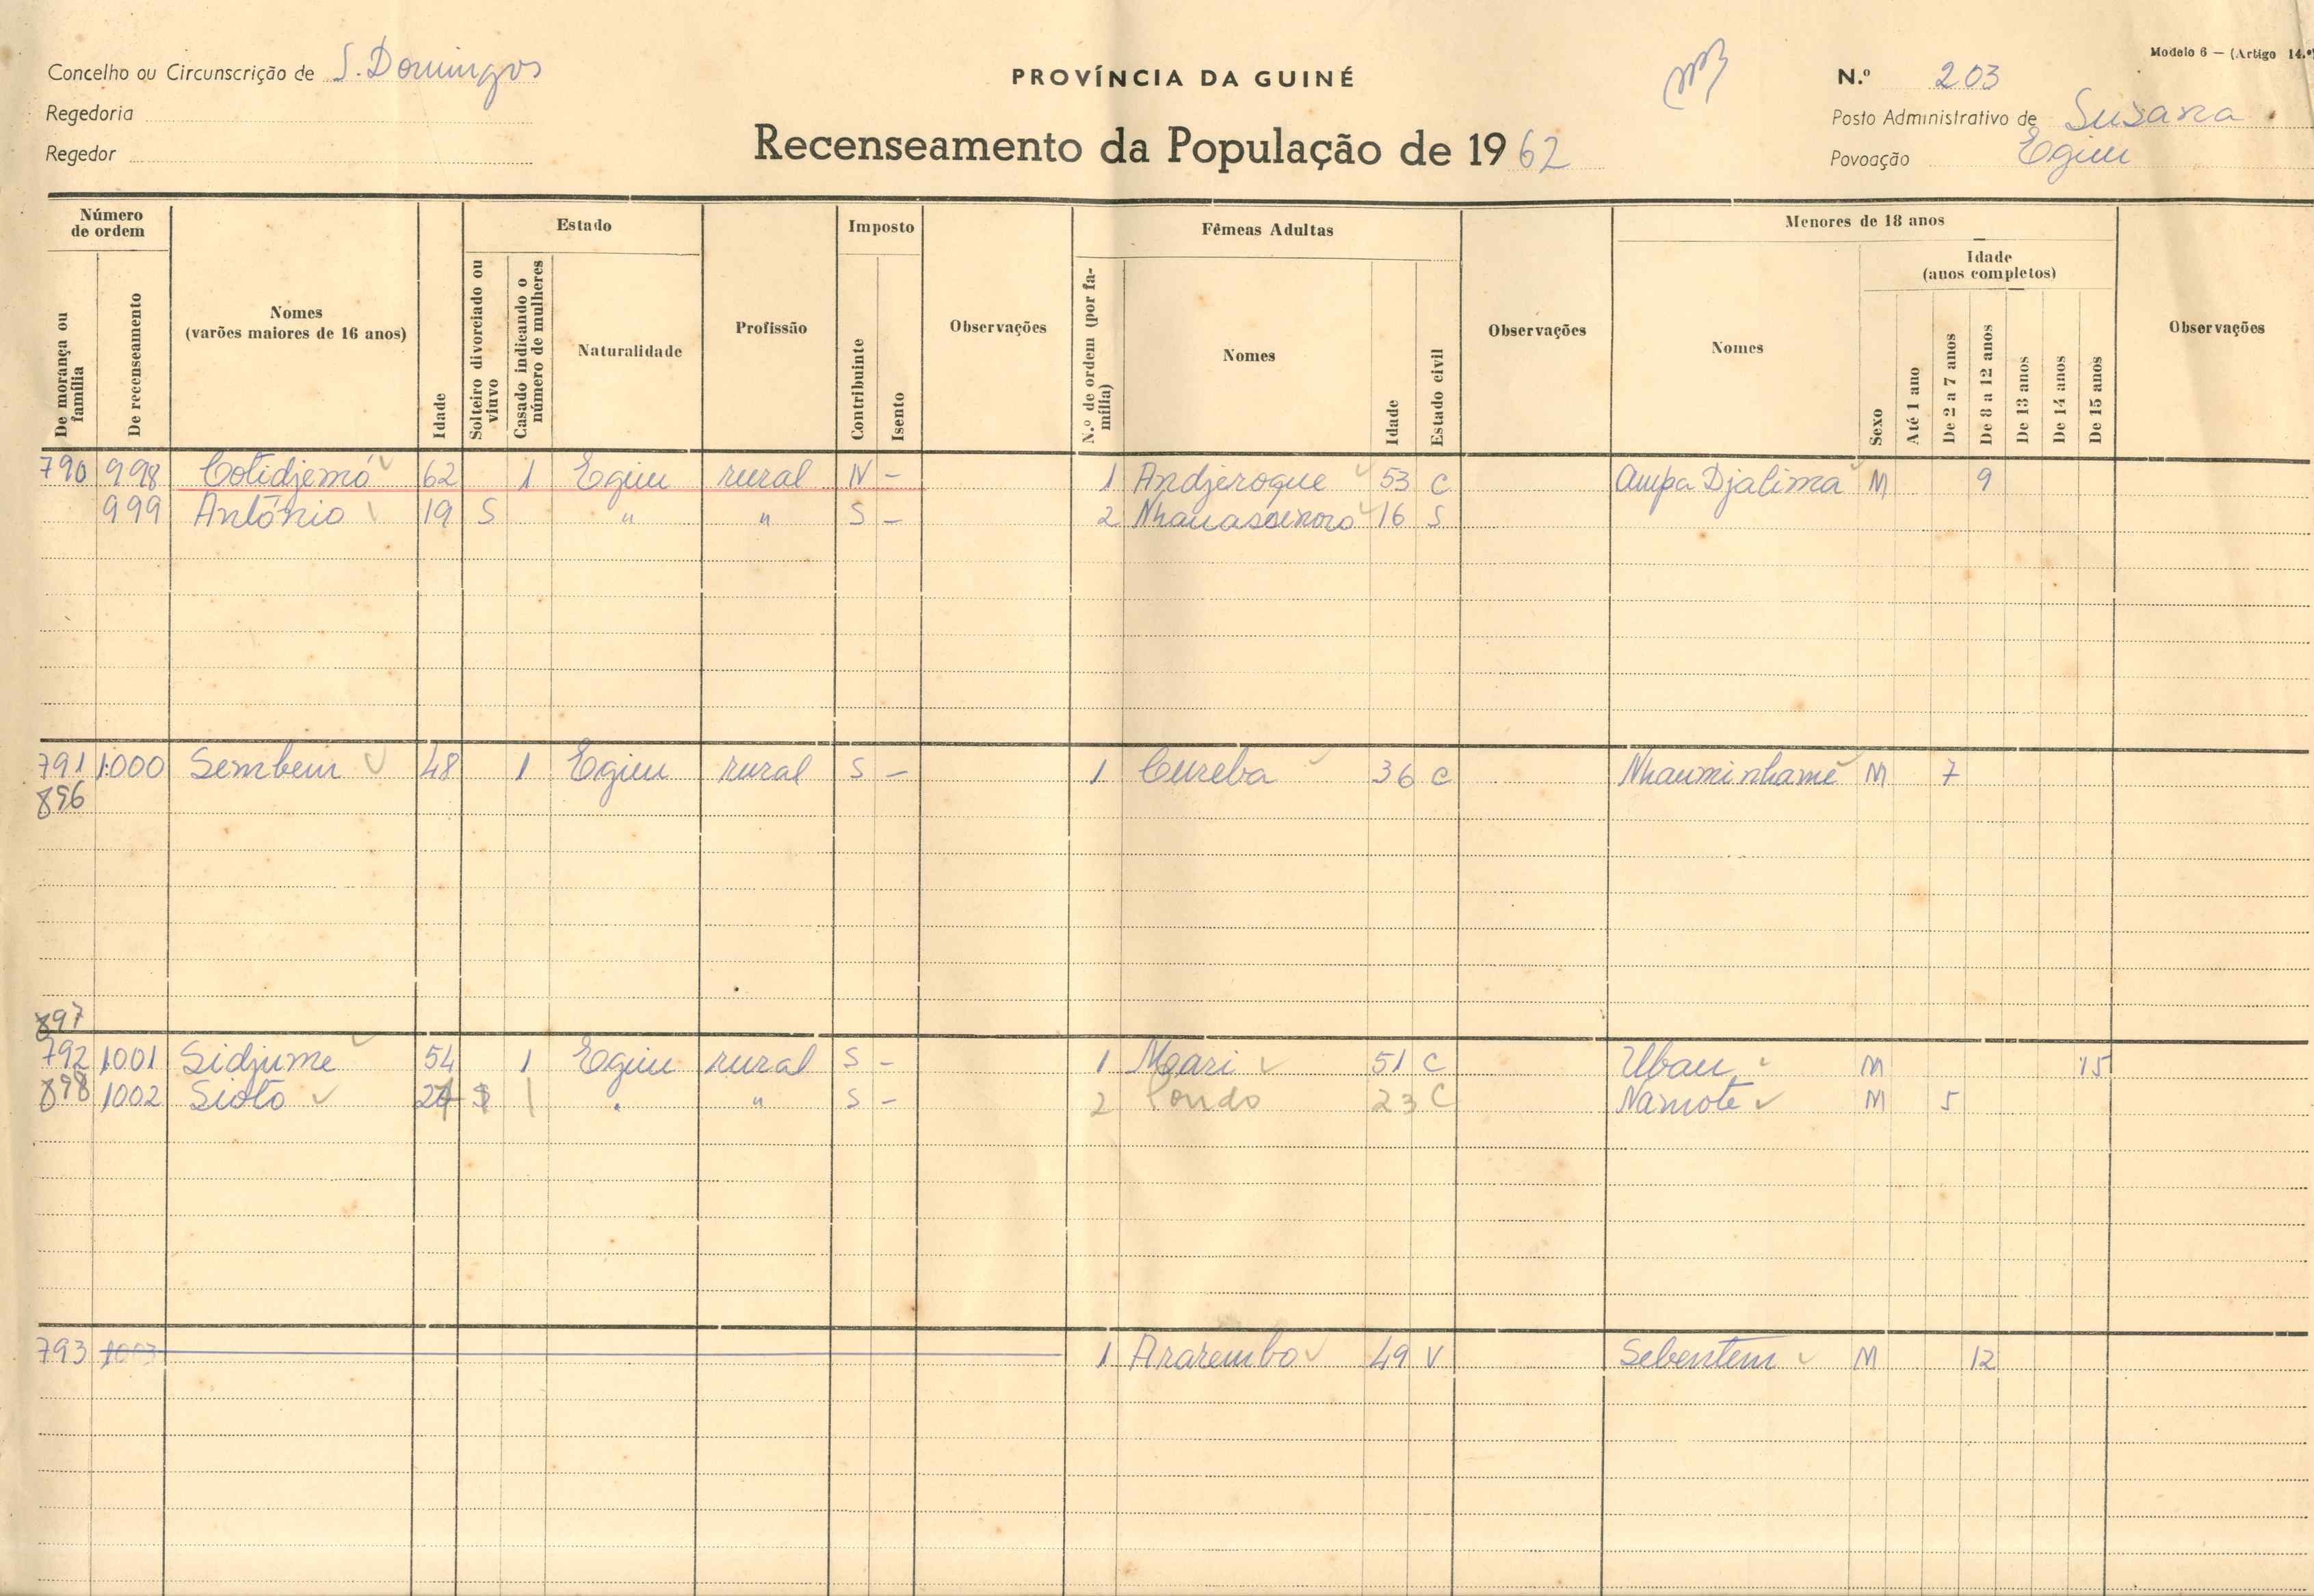 Modelo 6 — (Artigo 14.º
Concelho ou Circunscrição de S. Domingos
PROVÍNCIA DA GUINÉ
N.º 203
Regedoria
Posto Administrativo de Susana
Regedor
Recenseamento da População de 1962
Povoação Egiu
Número de ordem
De morança ou família
De recenseamento
Nomes
(varões maiores de 16 anos)
Idade
Estado
Solteiro divorciado ou viuvo
Casado indicando o número de mulheres
Naturalidade
Profissão
Imposto
Contribuinte
Isento
Observações
Fêmeas Adultas
N.º de ordem (por família)
Nomes
Idade
Estado civil
Observações
Menores de 18 anos
Nomes
Sexo
Idade
(anos completos)
Até 1 ano
De 2 a 7 anos
De 8 a 12 anos
De 13 anos
De 14 anos
De 15 anos
Observações
790 998 Cotidjemó 62 1 Egiu rural N - 1 Andjeroque 53 C Aupa Djalima M 9
999 António 19 S " " S - 2 16 S
791 1.000 Sembem 48 1 Egiu rural S - 1 Cureba 36 C Nhauminhame M 7
896
897
792 1001 Sidjume 54 1 Egiu rural S - 1 Moari 51 C Ubau M 15
898 1002 Sioto 24 S 1 " " S - 2 Condo 23 C Namote M 5
793 1003 1 Ararembo 49 V Sebentem M 12